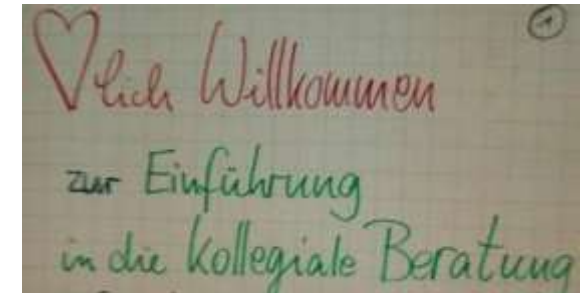 1
♡lich Willkommen
zur Einführung
in die kollegiale Beratung